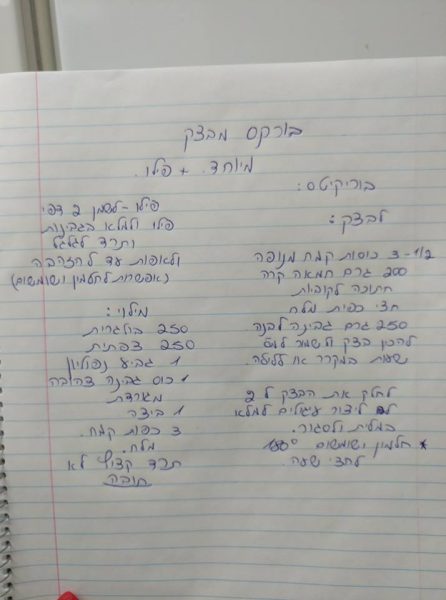 בורקס מבצק
מיוחד + פילו.
בוריקיטס:
לבצק:
3-1/2 כוסות קמח מנופה
200 גרם חמאה קרה
חתוכה לקוביות
חצי כפית מלח
250 גרם גבינה לבנה
להכין בצק ולשמור
שעות במקרר או ללילה.
לחלק את הבצק ל 2
ליצור עיגולים למלא
במלית ולסגור.
* חלמון ושומשום 180°
לחצי שעה.
פילו - לשמן 2 דפי
פילו ולמלא בגבינות
ותרד לגלגל
ולאפות עד להזהבה
(אפשרות לחלמון ושומשום)
מילוי:
250 בולגרית
250 צפתית
1 גביע נפוליון
1 כוס גבינה צהובה
מגורדת
1 ביצה
3 כפות קמח.
מלח.
תרד קצוץ לא
חובה